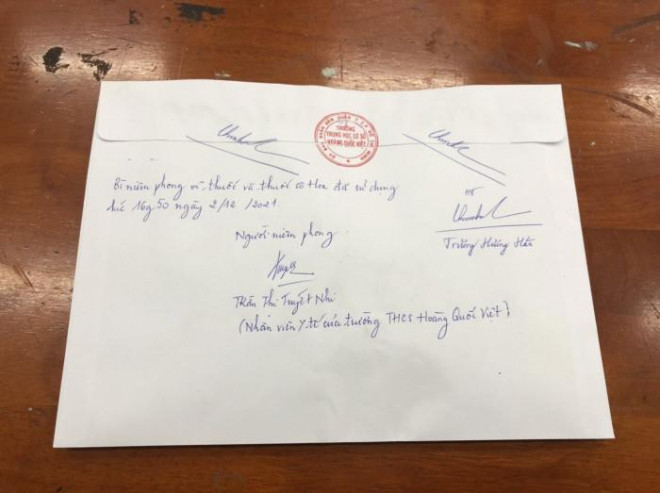 TRƯỜNG
TRUNG HỌC CƠ SỞ
HOÀNG QUỐC VIỆT
Bì niêm phong vỉ thuốc và thuốc cô Hoa đã sử dụng
lúc 16g50 ngày 2/12/2021
HT
Trương Hương Hảo
Người niêm phong
Trần Thị Tuyết Nhi
(Nhân viên Y tế của trường THCS Hoàng Quốc Việt)